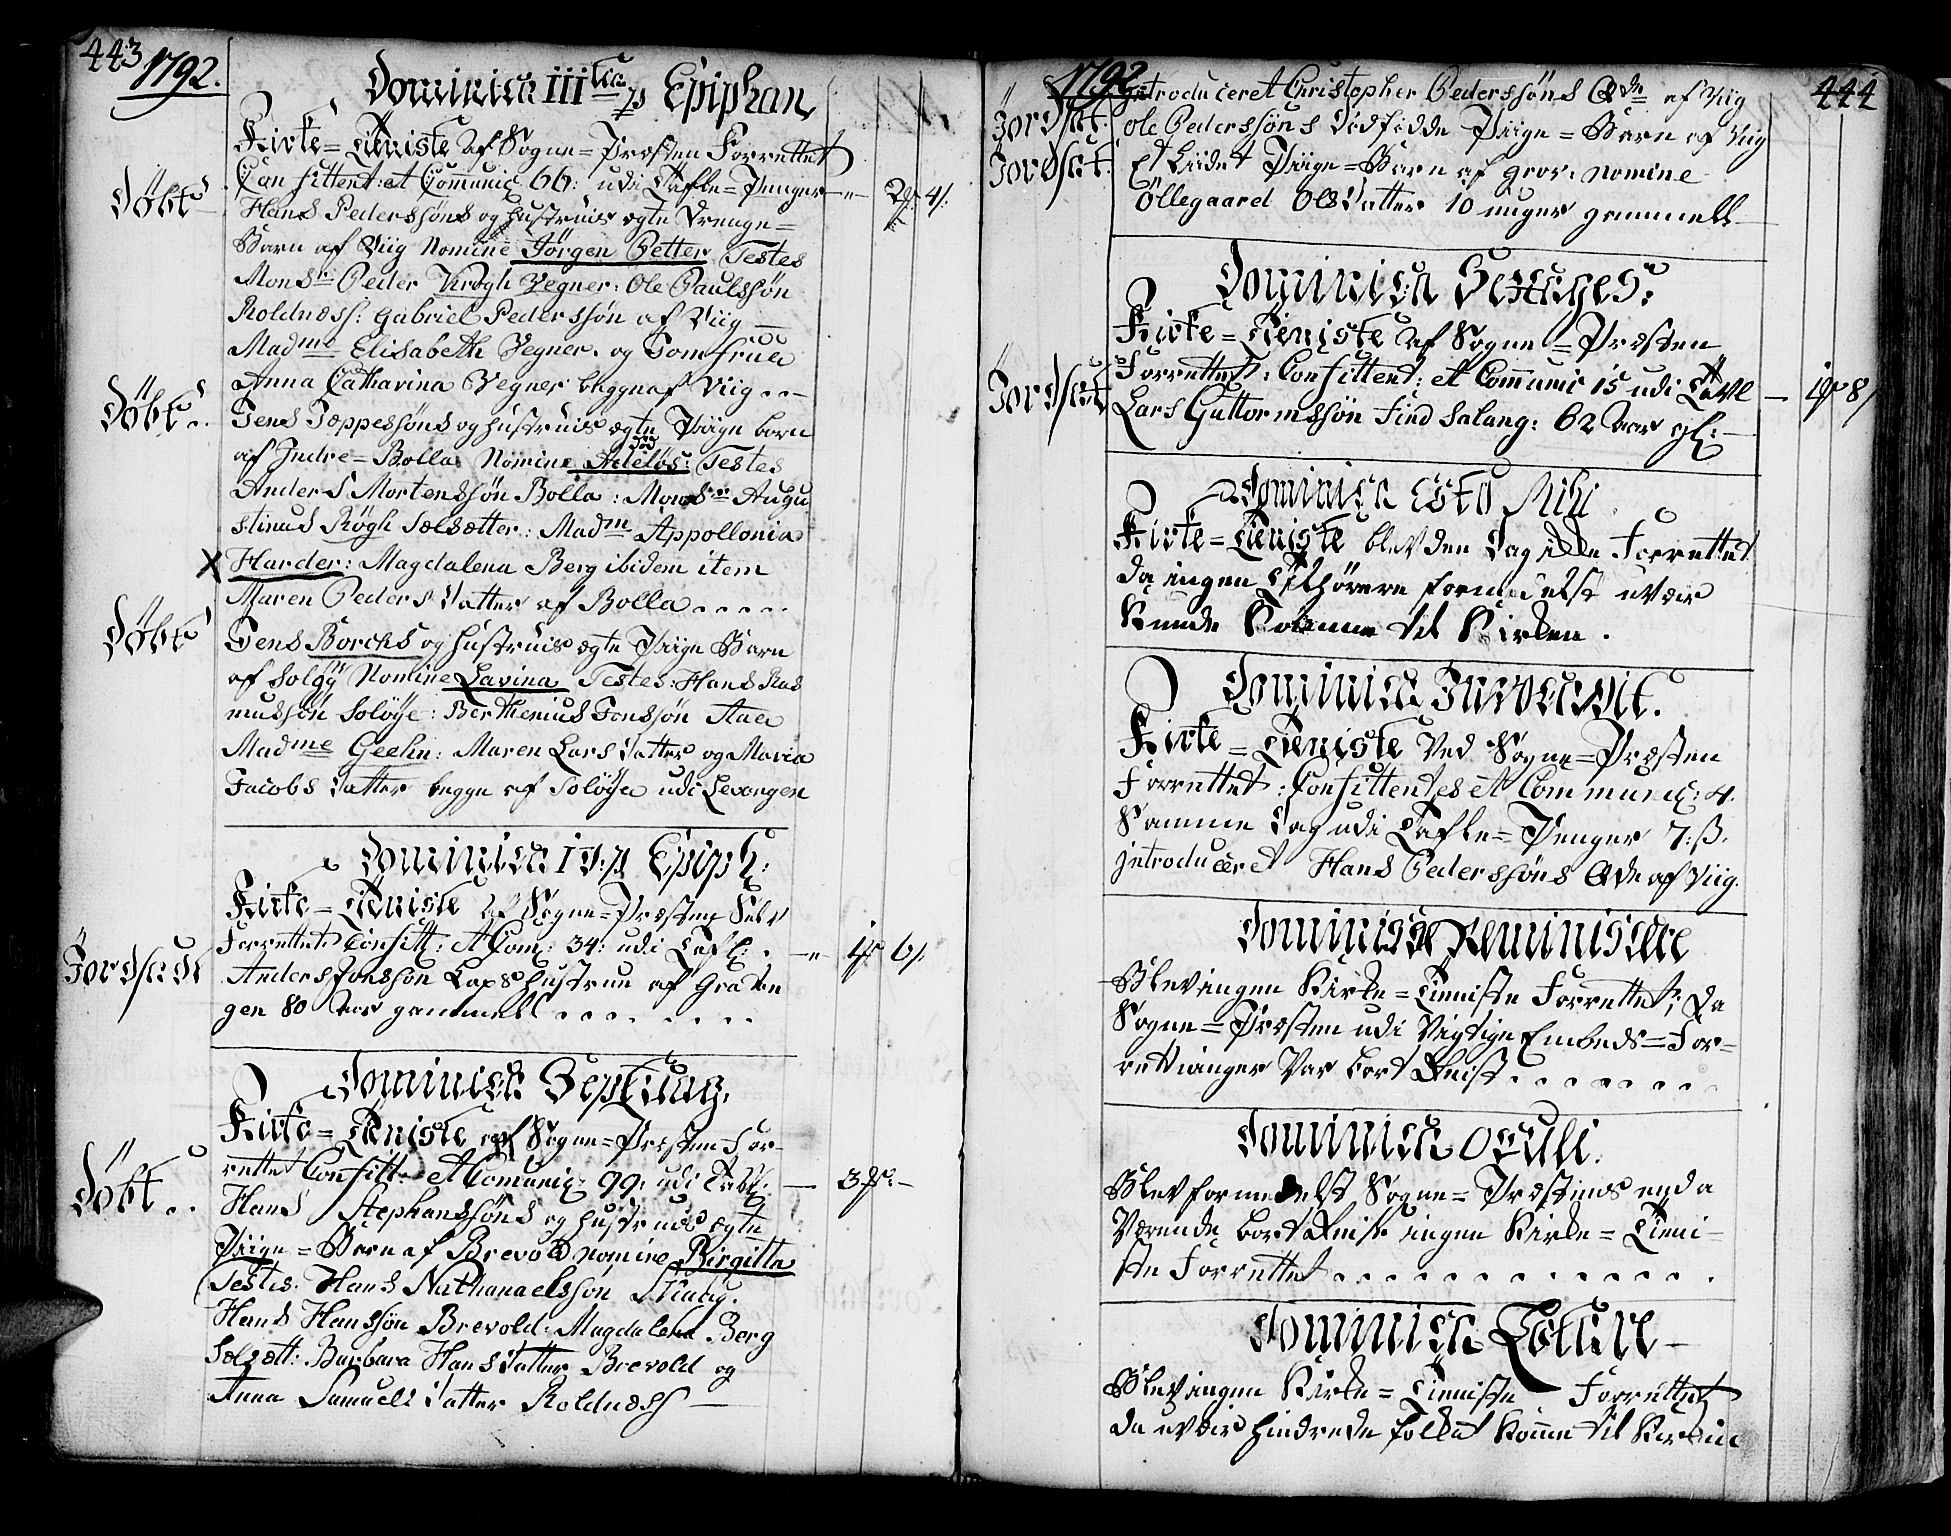 443
1792.
Dominica III tia p Epiphan
Kirke=Tieniste af Sogne=Præsten Forrettet
Confittent: et Com̄unic 66: udi Tafle=Penger
2 4
Døbt
Hans Pederssøns og Hustrues ægte Drenge=
Barn af Viig Nomine Jørgen Petter Testes
Monsr Peder Krogh Vegner: Ole Paulssøn
Roldnæss: Gabriel Pederssøn af Viig
Madme Elisabeth Vegner. og Jomfrue
Anna Catharina Vegner begge af Viig
Døbt
Jens Joppessøns og Hustrues ægte Piige barn
af Indre=Bolla Nomine Adeløs: Testes
død
Anders Mortenssøn Bolla: Monsr Augu
stinus Røgh Sælsætter: Madme Appollonia
X Harder: Magdalena Berg ibidem item
Maren Peders Datter af Bolla
Døbt
Jens Borchs og Hustrues ægte Piige Barn
af Soløy Nomine Lavina Testes: Hans Ras
mussøn Soløye: Berthenius Jonssøn
Madme Geelm: Maren Lars Datter og Maria
Jacobs Datter begge af Soløye udi Levangen
Dominica IV p Epiph:
Kirke=Tieniste af Sogne=Præsten Selv
Forrettet Confitt: et Com: 34: udi Tafl:
1 6
Jordfæstede
Anders Jonssøn Laps Hustrue af Gratan
gen 80 Aar gammel
Dominica Septuag.
Kirke=Tieniste af Sogne=Præsten For-
rettet Confitt: et Comunic: 99: udi Tabl:
3
Døbt
Hans Stephanssøns og Hustrues ægte
Piige=Barn af Brevold nomine Birgitte
Testes: Hans Nathanaelssøn
Hans Hanssøn Brevold: Magdalena Berg
Sælsætt: Barbara Hans Datter Brevold og
Anna Samuels Datter Roldnæss
1792
444
Introduceret Christopher Pederssøns Qde af Viig
Jordfæt:
Ole Pederssøns Dødfødde Piige=Barn af Viig
Jordfæt:
Et Liidet Piige=Barn af Grov: nomine
Øllegaard Ols Datter 10 uuger gammell
Dominica Sexages:
Kirke=Tieniste af Sogne=Præsten
Forrettet: Confittent: et Com̄unic 15 udi Tavl
1 8
Jordfæt
Lars Guttormssøn Find Salang: 62 Aar gl:
Dominica Esto Mihi
Kirke=Tieniste blev den Dag ikke Forrettet
da ingen Tilhørere formedelst uvær
Kunde Komme til Kirken.
Dominica Invocavit.
Kirke=Tieniste ved Sogne=Præsten
Forrettet: Confittentes et Communic: 4.
Samme Dag udi Tafle=Penger 7:ß.
jntroduceret Hans Pederssøns Qde af Viig.
Dominica Reminiscere
Blev ingen Kirke=Tieniste Forrettet; da
Sogne=Præsten udi Vigtige Embeds=For=
rettninger var bort Reist
Dominica Oculi.
Blev formedelst Sogne=Præstens enda
Værende bort Reist ingen Kirke=Tieni-
ste Forrettet
Dominica Lætare
Blev ingen Kirke=Tieniste Forrettet
da uvær hindrede folket Kom̄e til Kirken